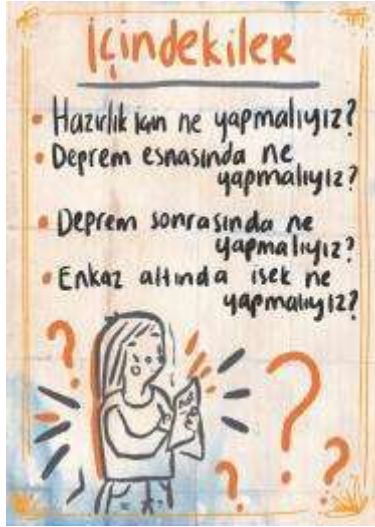 İçindekiler
• Hazırlık için ne yapmalıyız?
• Deprem esnasında ne
yapmalıyız?
• Deprem sonrasında ne
yapmalıyız?
• Enkaz altında isek ne
yapmalıyız?
? ? ? ?